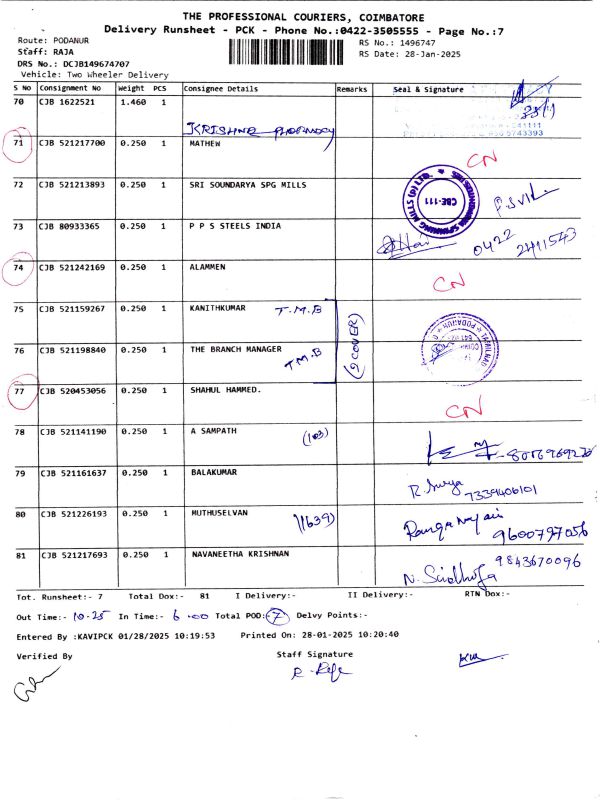 THE PROFESSIONAL COURIERS, COIMBATORE
Delivery Runsheet - PCK - Phone No.:0422-3505555 - Page No.:7
Route: PODANUR
RS No.: 1496747
Staff: RAJA
RS Date: 28-Jan-2025
DRS No.: DCJB149674707
Vehicle: Two Wheeler Delivery
S No Consignment No Weight PCS Consignee Details Remarks Seal & Signature
70 CJB 1622521 1.460 1
KRISHNA PHARMACY
71 CJB 521217700 0.250 1 MATHEW CN
72 CJB 521213893 0.250 1 SRI SOUNDARYA SPG MILLS
CBE-111
73 CJB 80933365 0.250 1 P P S STEELS INDIA
0422 2411543
74 CJB 521242169 0.250 1 ALAMMEN CN
75 CJB 521159267 0.250 1 KANITHKUMAR T.M.B
(9 COVER)
76 CJB 521198840 0.250 1 THE BRANCH MANAGER T.M.B
77 CJB 520453056 0.250 1 SHAHUL HAMMED. CN
78 CJB 521141190 0.250 1 A SAMPATH (103)
79 CJB 521161637 0.250 1 BALAKUMAR R. Surya
7339406101
80 CJB 521226193 0.250 1 MUTHUSELVAN (1639)
9600797056
81 CJB 521217693 0.250 1 NAVANEETHA KRISHNAN 9843670096
Tot. Runsheet:- 7 Total Dox:- 81 I Delivery:- II Delivery:- RTN Dox:-
Out Time:- 10-25 In Time:- 6.00 Total POD:- 7 Delvy Points:-
Entered By :KAVIPCK 01/28/2025 10:19:53 Printed On: 28-01-2025 10:20:40
Verified By Staff Signature